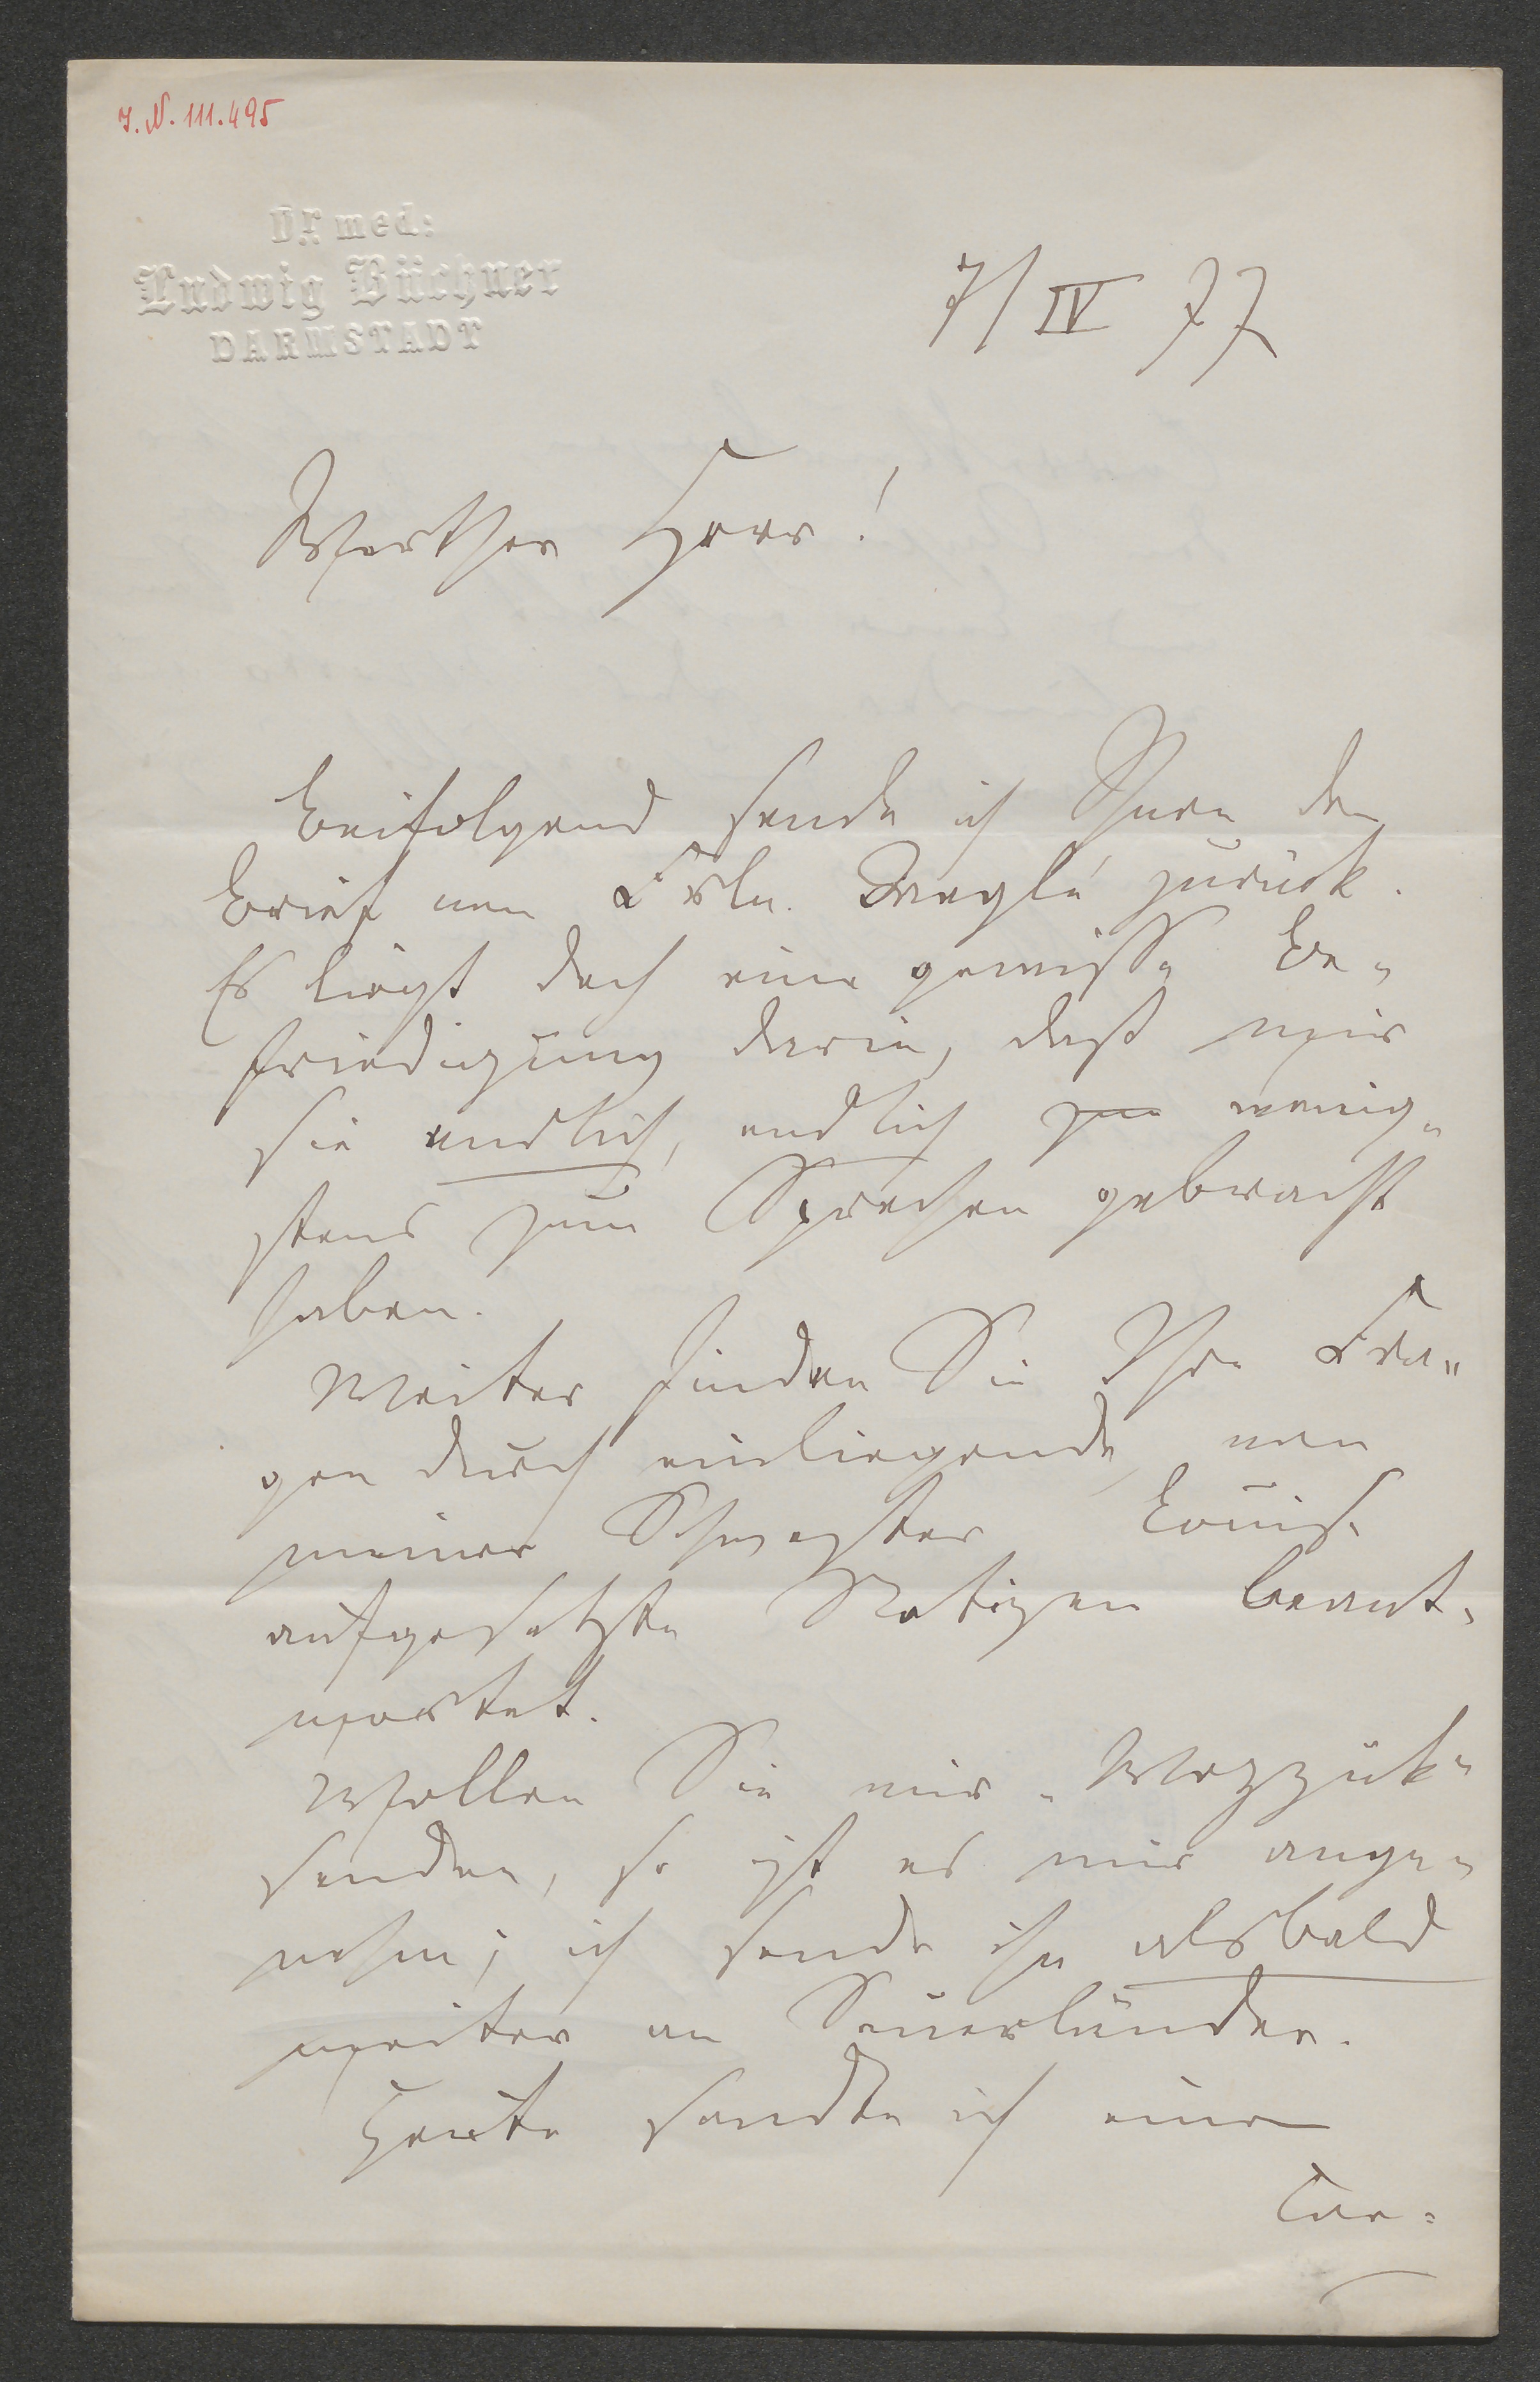 J. N. 111.495
Dr med:
Ludwig Büchner
DARMSTADT
7/IV 77
Werther Herr!
Beifolgend sende ich Ihnen den
Brief von Frln. Jaeglé zurück.
Es liegt doch eine gewisse Be-
friedigung darin, daß wir
sie endlich, endlich wenig-
stens zum Sprechen gebracht
haben.
Weiter finden Sie Ihre Fra-
gen durch einliegende, von
meiner Schwester Louise
aufgesetzte Notizen beant-
wortet.
Wollen Sie mir „Wozzek“
senden, so ist es mir ange-
nehm; ich sende ihn alsbald
weiter an Sauerländer.
Heute sandte ich einen
Cor-